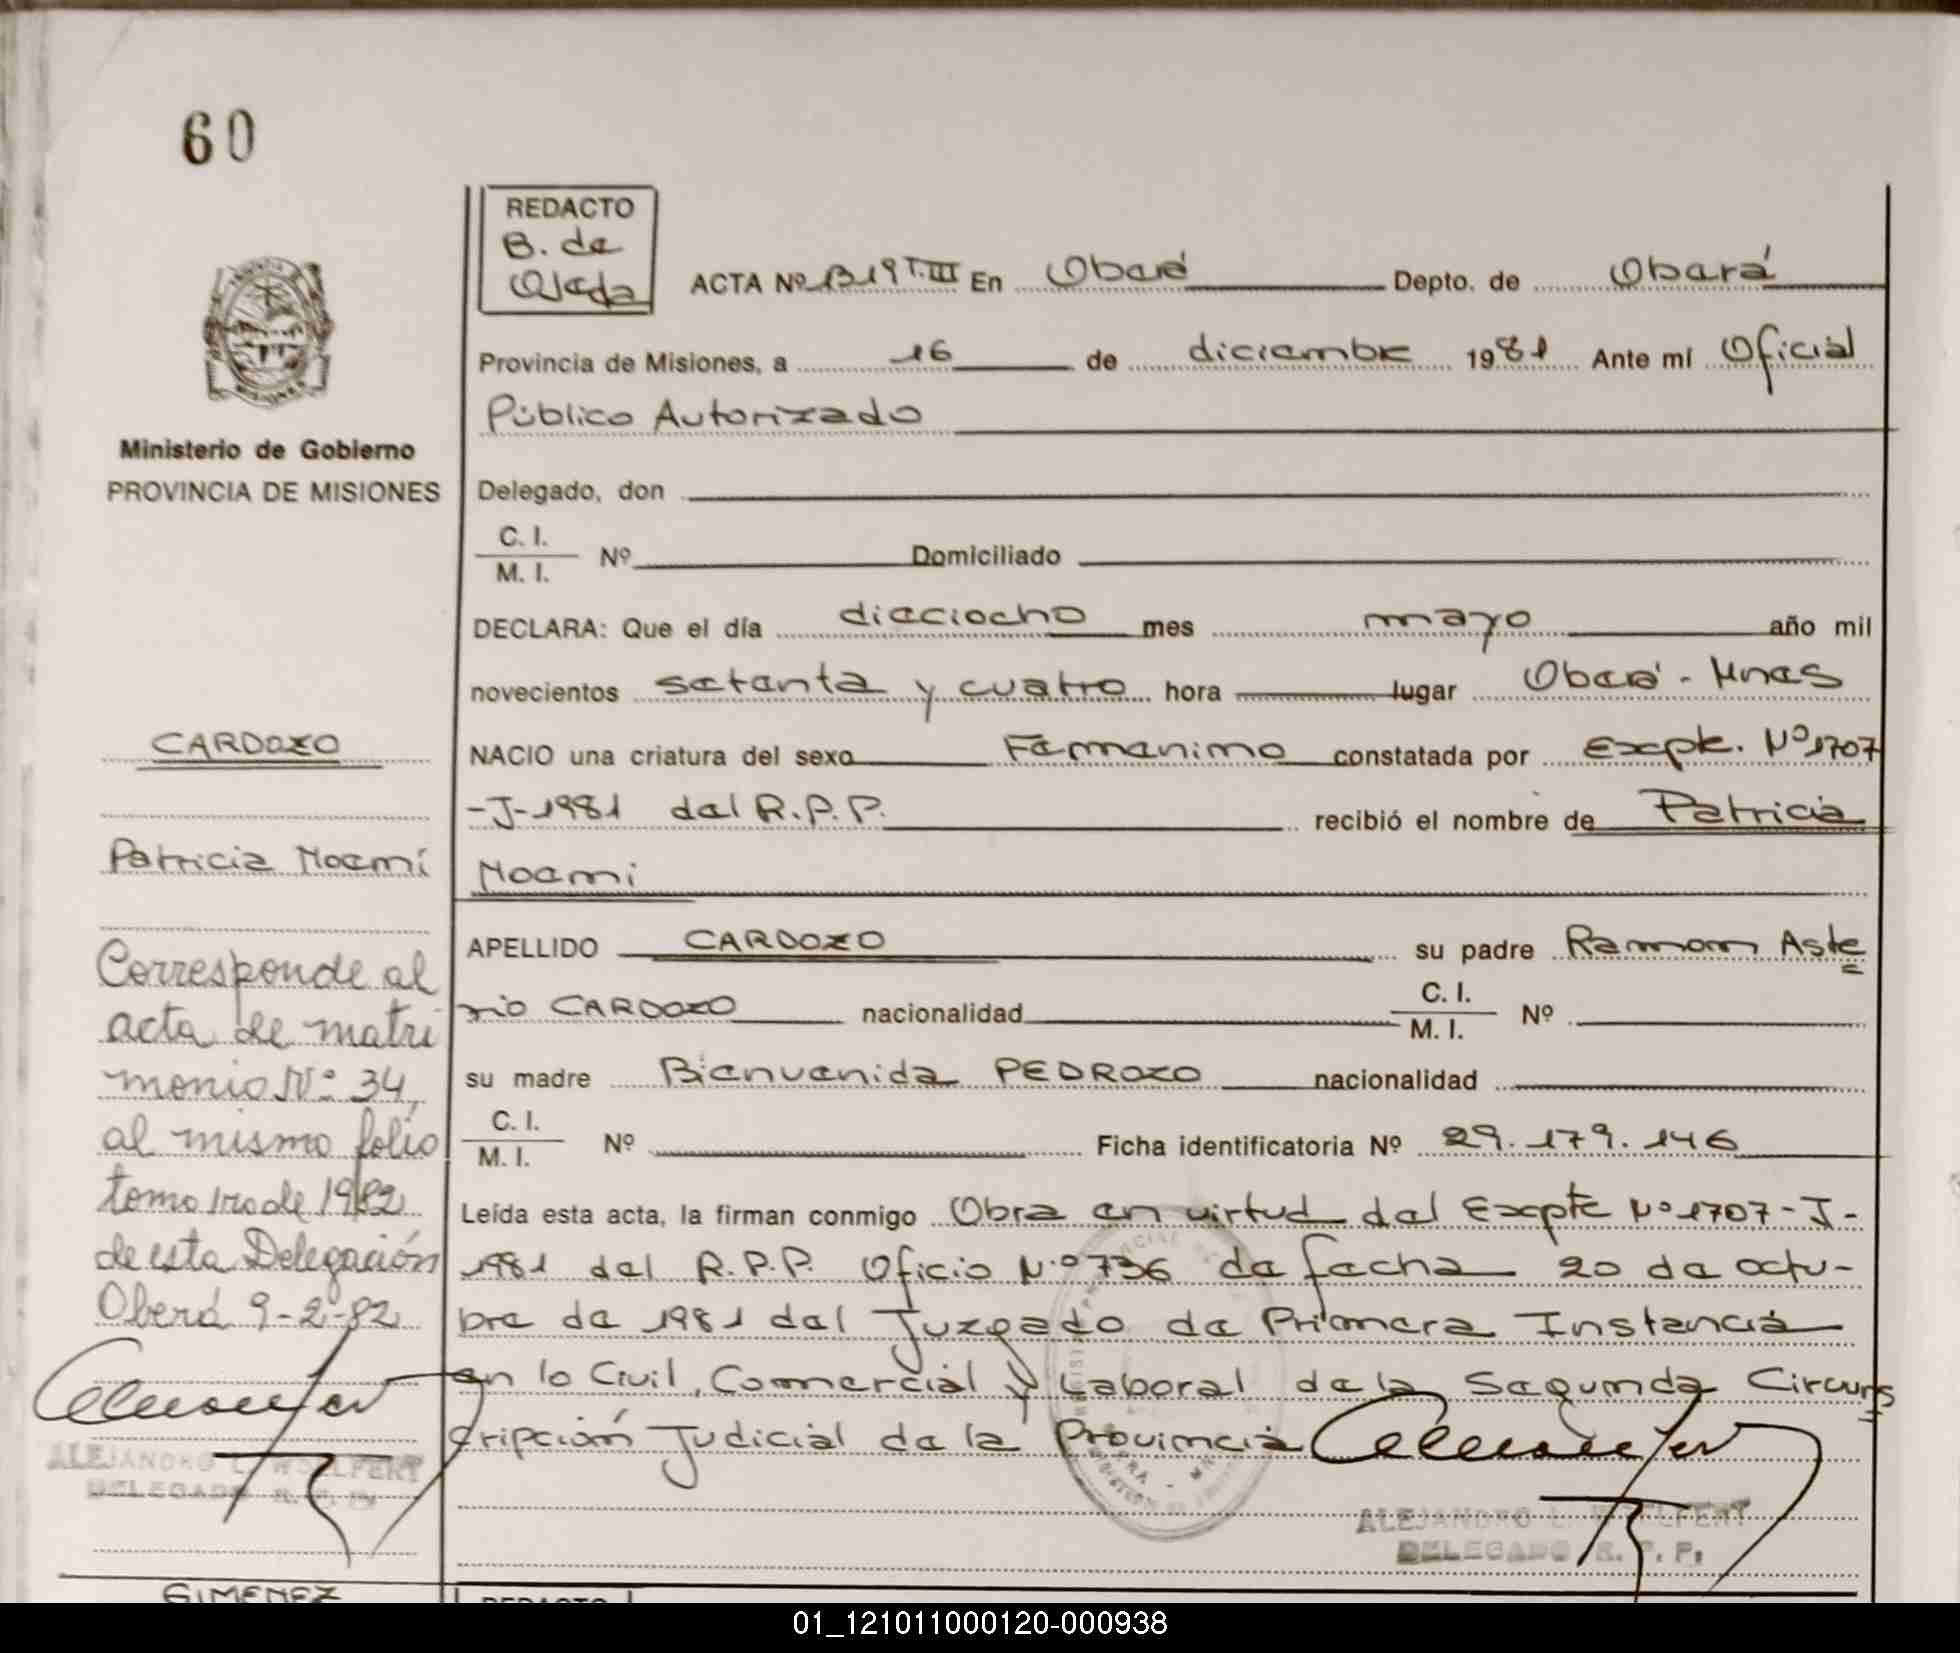 60
REDACTO
B. de
Ojeda
ACTA Nº B19 T.III En Oberá Depto. de Oberá
Provincia de Misiones, a 16 de diciembre 1981 Ante mí Oficial
Público Autorizado
Ministerio de Gobierno
PROVINCIA DE MISIONES
Delegado, don
C. I.
M. I. Nº Domiciliado
DECLARA: Que el día dieciocho mes mayo año mil
novecientos setenta y cuatro hora lugar Oberá - Mnes
NACIO una criatura del sexo Femenino constatada por Expte. Nº 1707
-J-1981 del R.P.P. recibió el nombre de Patricia
Noemi
APELLIDO CARDOZO su padre Ramon Aste
rio CARDOZO nacionalidad C. I. M. I. Nº
su madre Bienvenida PEDROZO nacionalidad
C. I.
M. I. Nº Ficha identificatoria Nº 29.179.146
Leída esta acta, la firman conmigo Obra en virtud del Expte Nº 1707-J-
1981 del R.P.P. Oficio N.º 736 de fecha 20 de octu-
bre de 1981 del Juzgado de Primera Instancia
en lo Civil, Comercial y Laboral de la Segunda Circuns
cripción Judicial de la Provincia
ALEJANDRO L. WOLFERT
DELEGADO R. P. P.
CARDOZO
Patricia Noemí
Corresponde al
acta de matri
monio Nº 34,
al mismo folio
tomo 1ro de 1982
de esta Delegación
Oberá 9-2-82
ALEJANDRO L. WOLFERT
DELEGADO R. P. P.
GIMENEZ
REDACTO
01_121011000120-000938